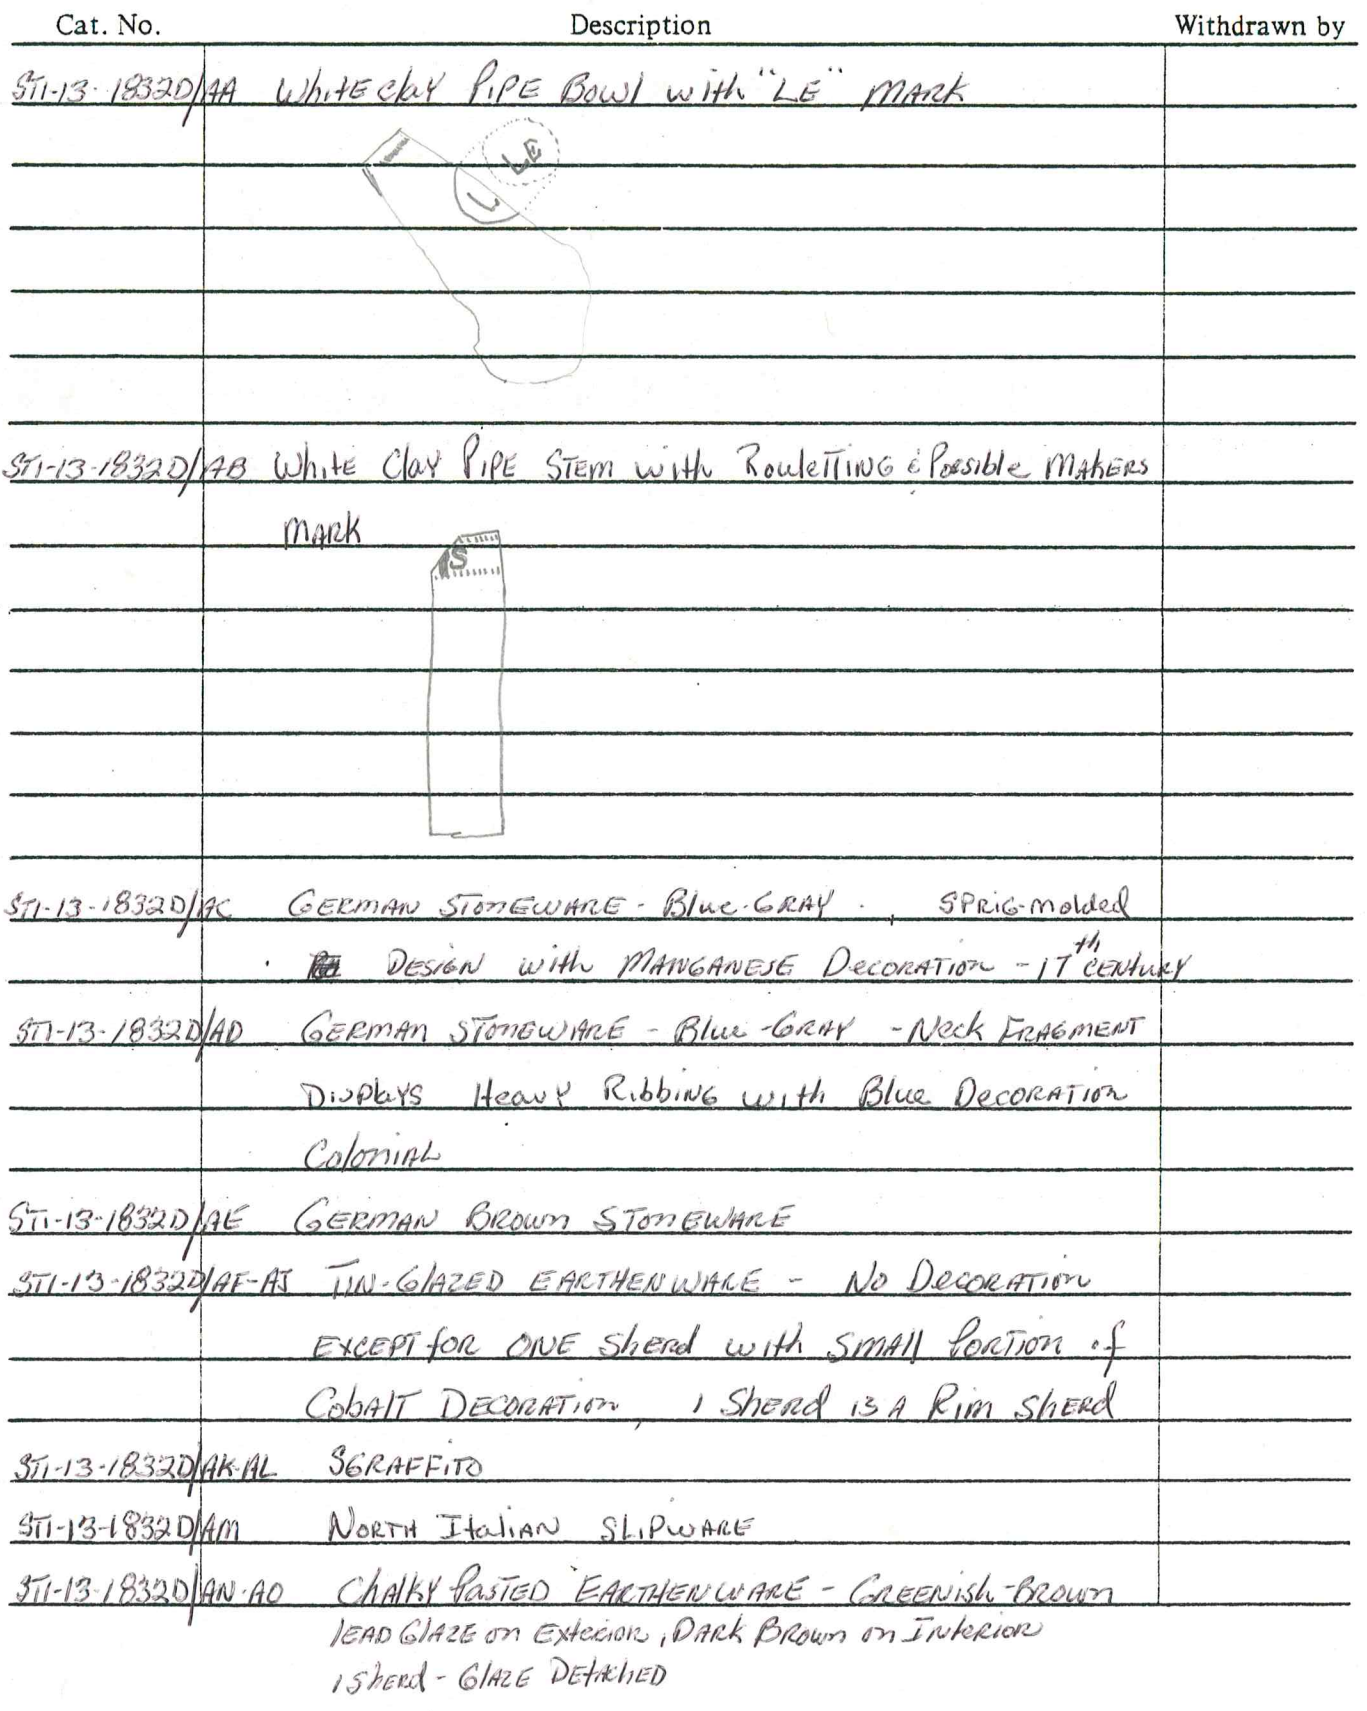 Cat. No. Description Withdrawn by
ST1-13-1832D/AA White Clay Pipe Bowl with "LE" MARK
LE
L
ST1-13-1832D/AB White Clay Pipe Stem with Rouletting & Possible Makers
MARK
S
ST1-13-1832D/AC German Stoneware - Blue-Gray , Sprig-molded
Design with Manganese Decoration - 17th Century
ST1-13-1832D/AD German Stoneware - Blue-Gray - Neck Fragment
Displays Heavy Ribbing with Blue Decoration
Colonial
ST1-13-1832D/AE German Brown Stoneware
ST1-13-1832D/AF-AJ Tin-Glazed Earthenware - No Decoration
Except for ONE Sherd with Small Portion of
Cobalt Decoration, 1 Sherd is A Rim Sherd
ST1-13-1832D/AK-AL Sgraffito
ST1-13-1832D/AM North Italian Slipware
ST1-13-1832D/AN-AO Chalky Pasted Earthenware - Greenish-Brown
lead Glaze on Exterior, Dark Brown on Interior
1 Sherd - Glaze Detached